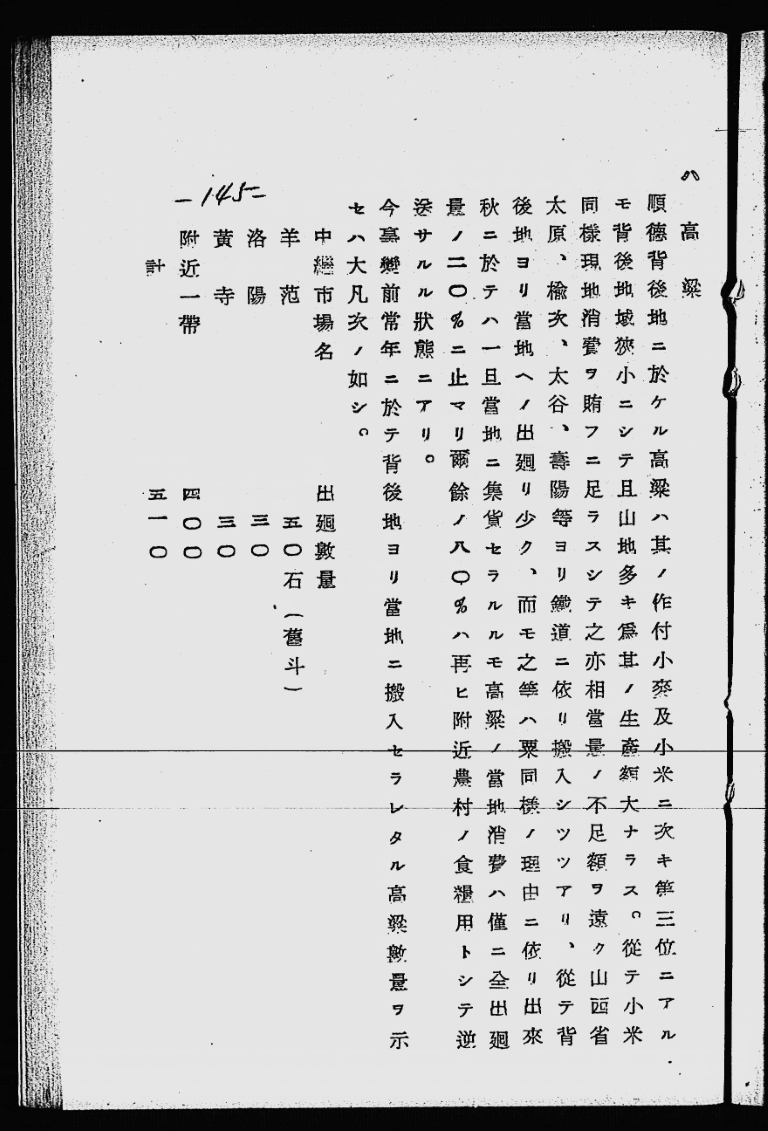 ハ 高粱
順德背後地ニ於ケル高粱ハ其ノ作付小麥及小米ニ次キ第三位ニアル
モ背後地域狹小ニシテ且山地多キ爲其ノ生產額大ナラス。從テ小米
同樣現地消費ヲ賄フニ足ラスシテ之亦相當量ノ不足額ヲ遠ク山西省
太原、楡次、太谷、壽陽等ヨリ鐵道ニ依リ搬入シツツアリ、從テ背
後地ヨリ當地ヘノ出廻リ少ク、而モ之等ハ粟同樣ノ理由ニ依リ出來
秋ニ於テハ一旦當地ニ集貨セラルルモ高粱ノ當地消費ハ僅ニ全出廻
量ノ二〇%ニ止マリ爾餘ノ八〇%ハ再ヒ附近農村ノ食糧用トシテ逆
送サルル狀態ニアリ。
今事變前常年ニ於テ背後地ヨリ當地ニ搬入セラレタル高粱數量ヲ示
セハ大凡次ノ如シ。
中繼市場名 出廻數量
羊范 五〇石(舊斗)
洛陽 三〇
黃寺 三〇
附近一帶 四〇〇
計 五一〇
-145-